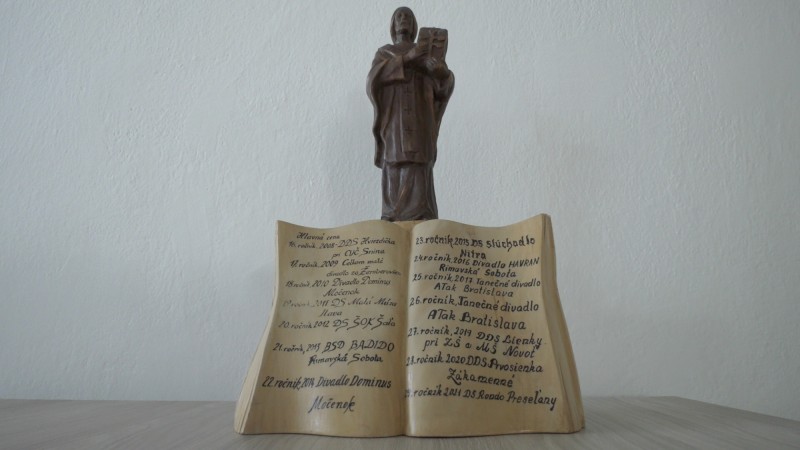 Hlavné ceny
16. ročník, 2008 DDS Hviezdička
pri CVČ Snina
17. ročník 2009 Celkom malé
divadlo
18. ročník 2010 Divadlo Dominus
Močenok
ročník 2011 DS Malá Múza
20. ročník 2012 DS ŠOK Šaľa
21. ročník, 2013 BSD BADIDO
Rimavská Sobota
22. ročník, 2014 Divadlo Dominus
Močenok
23. ročník 2015 DS Slúchadlo
Nitra
24. ročník 2016 Divadlo HAVRAN
Rimavská Sobota
25. ročník 2017 Tanečné divadlo
ATak Bratislava
26. ročník, Tanečné divadlo
ATak Bratislava
27. ročník, 2019 DDS Lienky
pri ZŠ a MŠ Novoť
28. ročník 2020 DDS Prvosienka
Zákamenné
29. ročník 2021 DS Rondo Preseľany